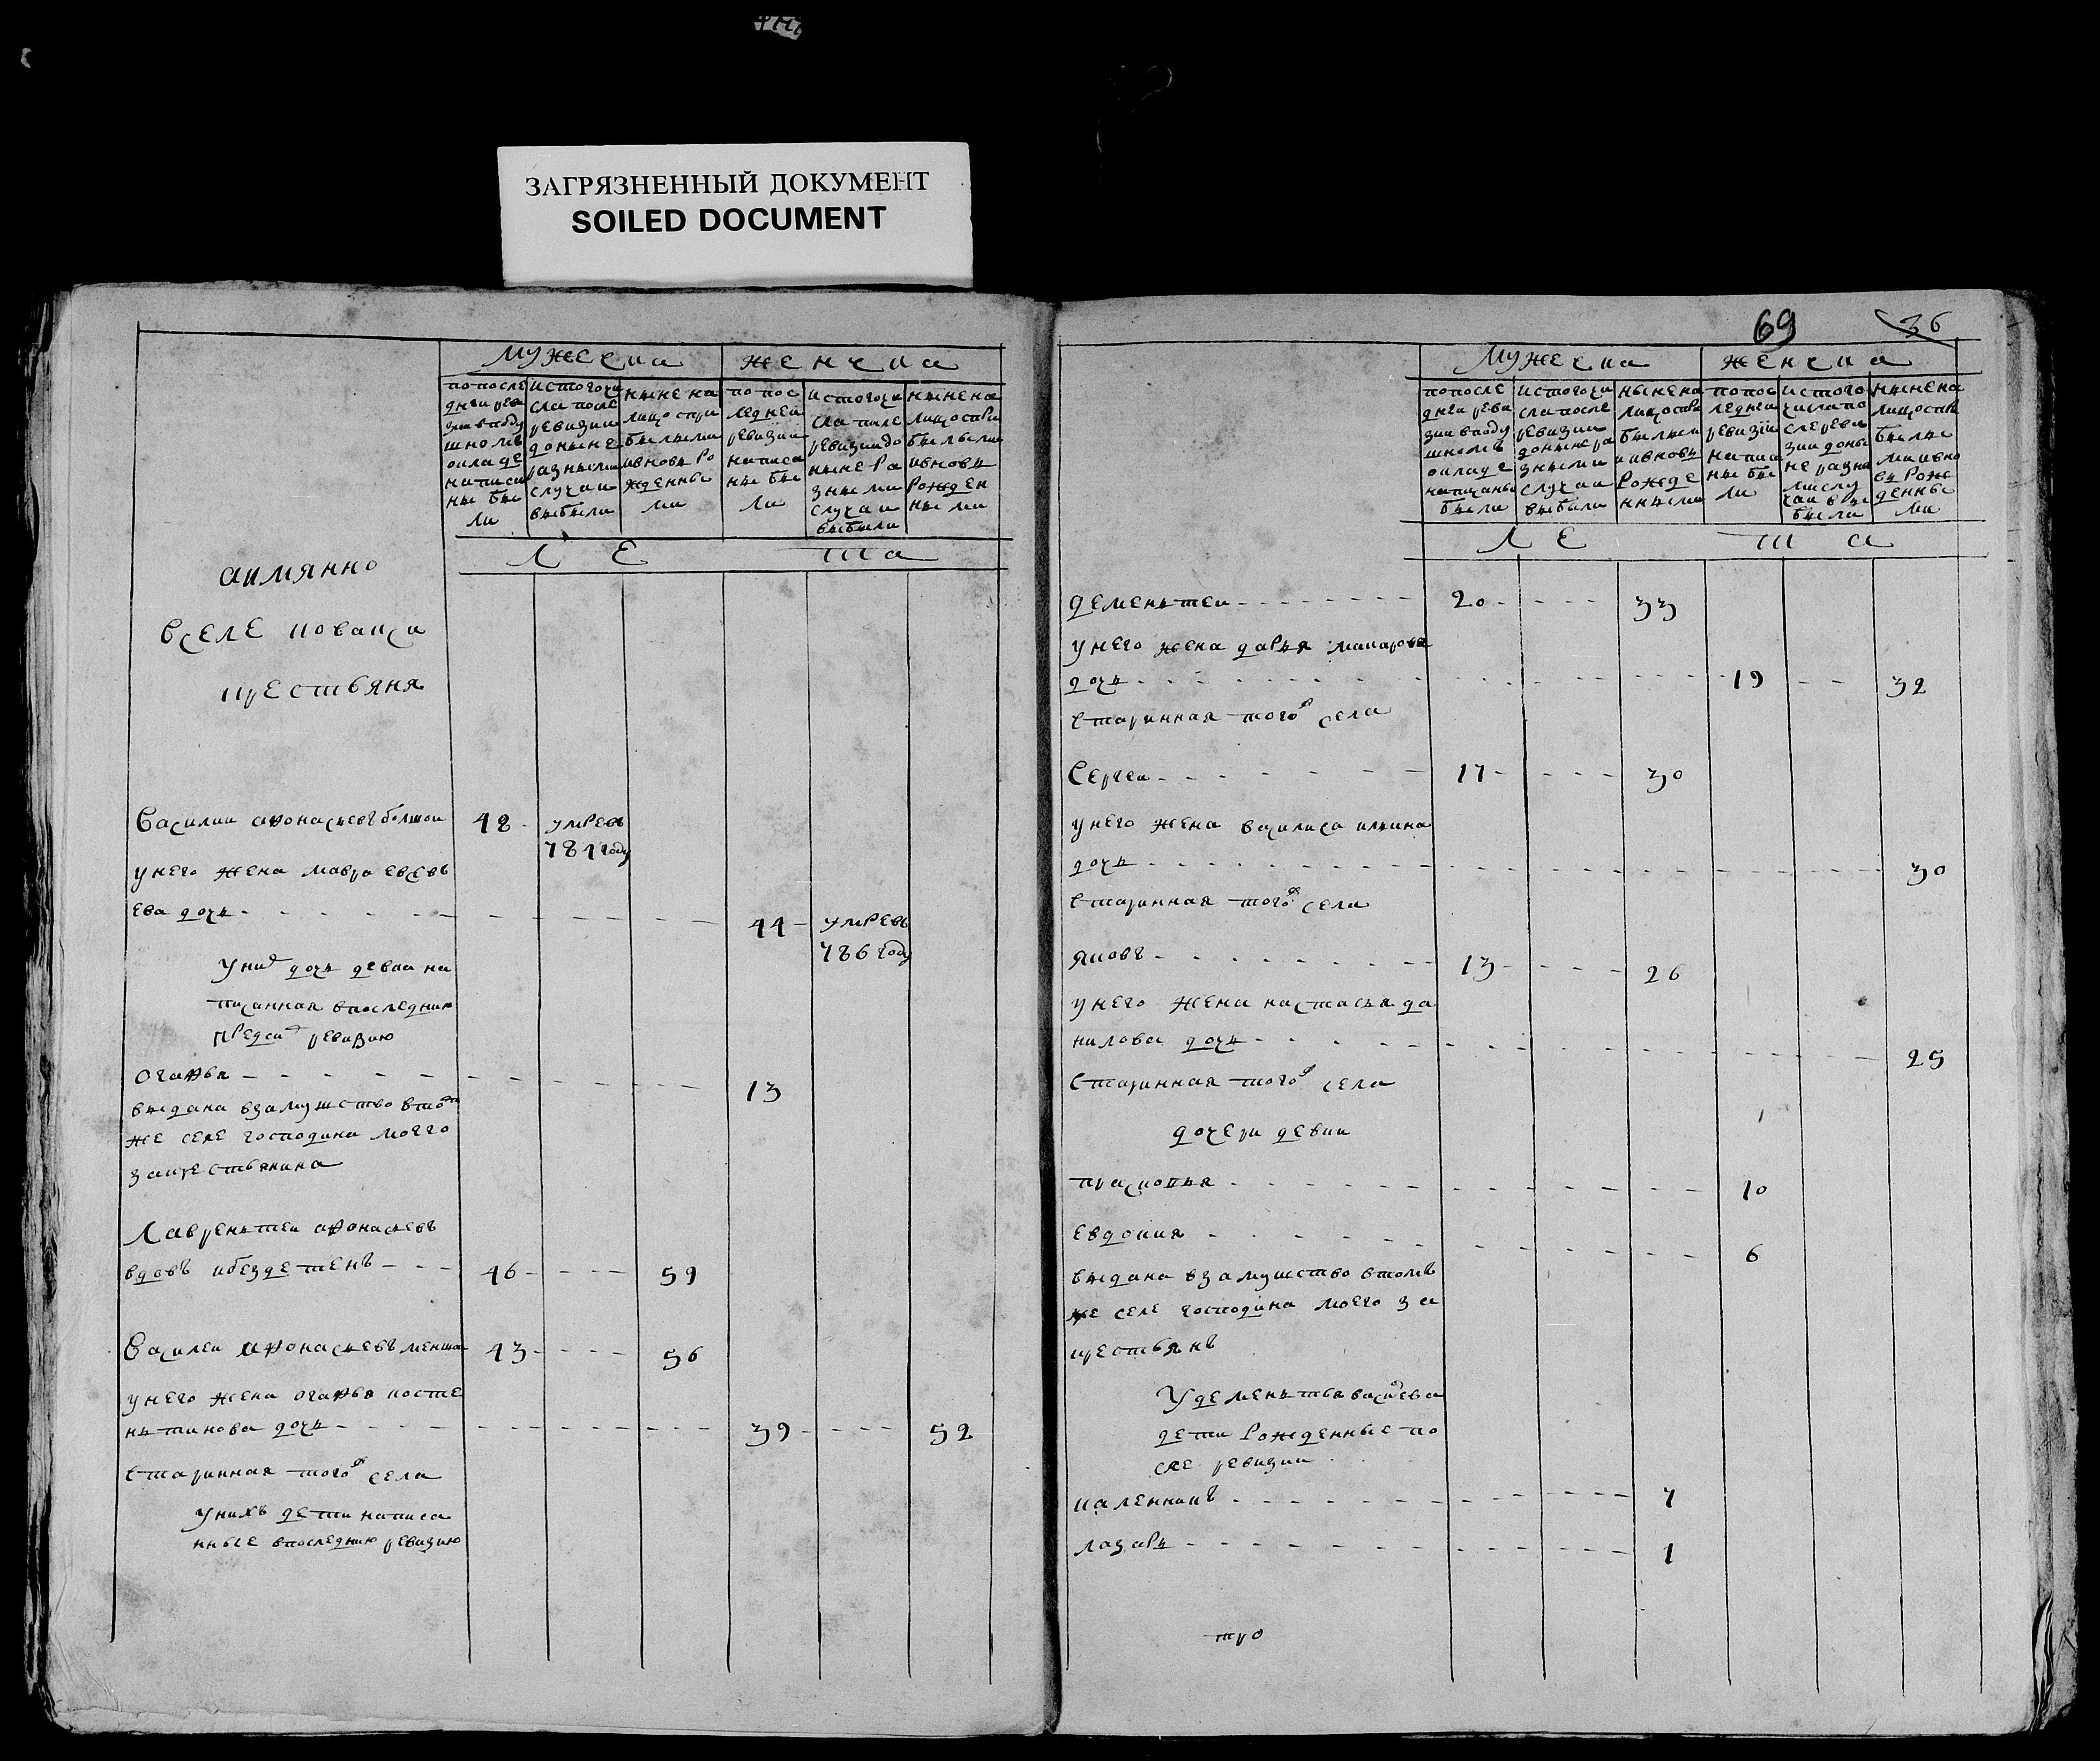 ЗАГРЯЗНЕННЫЙ ДОКУМЕНТ
SOILED DOCUMENT
мужеска женска
попосле днеи реви зии вподу шномъ окладе написа ны бы ли
истогочи сла после ревизии доныне разными случаи выбыли
ныне на лицо спри былыми ивновь ро жденны ми
попос ледней ревизии написа ны бы ли
истогочи сла после ревизиидо ныне ра зными случаи выбыли
ныне на лицо спри былыми ивновь рожден ны ми
ле та
аимянно
вселе ковакса
крестьяня
василии афонасьевъ болшои 48 умревъ
781 году
унего жена мавра евсевь
ева дочь 44 умревъ
786 году
уних дочь девка на
писанная впоследнию
пред сим ревизию
огафья 13
выдана взамужство втом
же селе господина моего
закрестьянина
лаврентеи афонасьевъ
вдовъ ибездетенъ 46 59
василеи афонасьевъ меншои 43 56
унего жена огафья косте
нтинова дочь 39 52
старинная того ж села
унихъ дети написа
нные впоследнию ревизию
69 36
мужеска женска
попосле днеи реви зии вподу шномъ окладе написаны были
истогочи сла после ревизии доныне ра зными случаи выбыли
ныне на лицо спри былыми ивновь рожде нными
попос леднеи ревизии написа ны бы ли
истого числа по сле реви зии доны не разны ми слу чаи вы были
ныне на лицо спри былы ми ивно вь рож денны ми
ле та
дементеи 20 33
унего жена дарья макарова
дочь 19 32
старинная того ж села
сергеи 17 30
унего жена василиса илина
дочь 30
старинная того ж села
яковъ 13 26
унего жена настасья да
нилова дочь 25
старинная того ж села
дочери девки
прасковья 10
евдокия 6
выдана взамужство втомъ
же селе господина моего за
крестьянъ
удементья васильева
дети рожденные по
сле ревизии
каленникъ 7
лазарь 1
тро